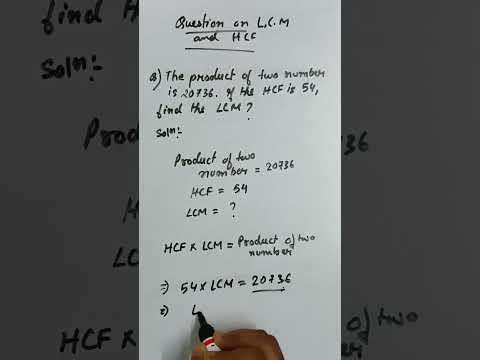 Question on L.C.M
and HCF
Q) The product of two number
is 20736. If the HCF is 54,
find the LCM ?
Solⁿ:-
Product of two
number = 20736
HCF = 54
LCM = ?
HCF × LCM = Product of two
number
=) 54 × LCM = 20736
=) L